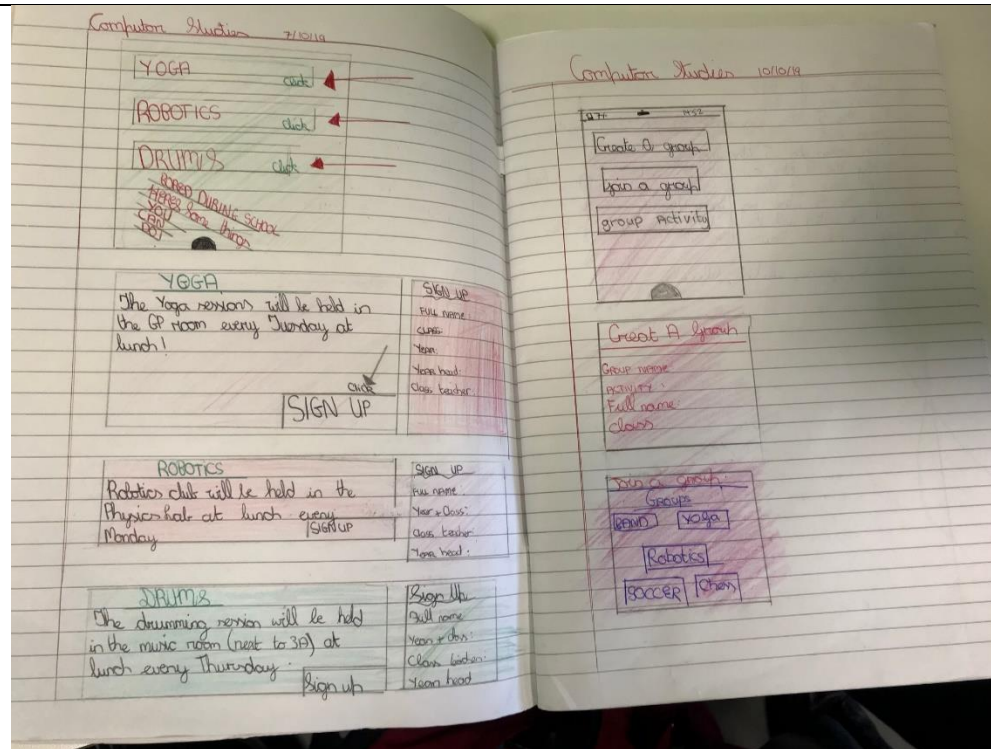 Computer Studies 7/10/19
YOGA
click
ROBOTICS
click
DRUMS
click
BORED DURING SCHOOL
HERES Some things
YOU
CAN
DO!
YOGA
The Yoga sessions will be held in
the GP room every Tuesday at
lunch!
click
SIGN UP
SIGN UP
FULL NAME:
CLASS:
Year:
Year head:
Class teacher:
ROBOTICS
Robotics club will be held in the
Physics lab at lunch every
Monday
SIGN UP
SIGN UP
FULL NAME:
Year + Class:
Class teacher:
Year head:
DRUMS
The drumming session will be held
in the music room (next to 3A) at
lunch every Thursday.
Sign up
Sign Up
Full name
Year + class:
Class teacher:
Year head
Computer Studies 10/10/19
Create A group
Join a group
group Activity
Creat A group
GROUP NAME
ACTIVITY:
Full name:
class
Join a group:
GROUPS
BAND
Yoga
Robotics
SOCCER
Chess